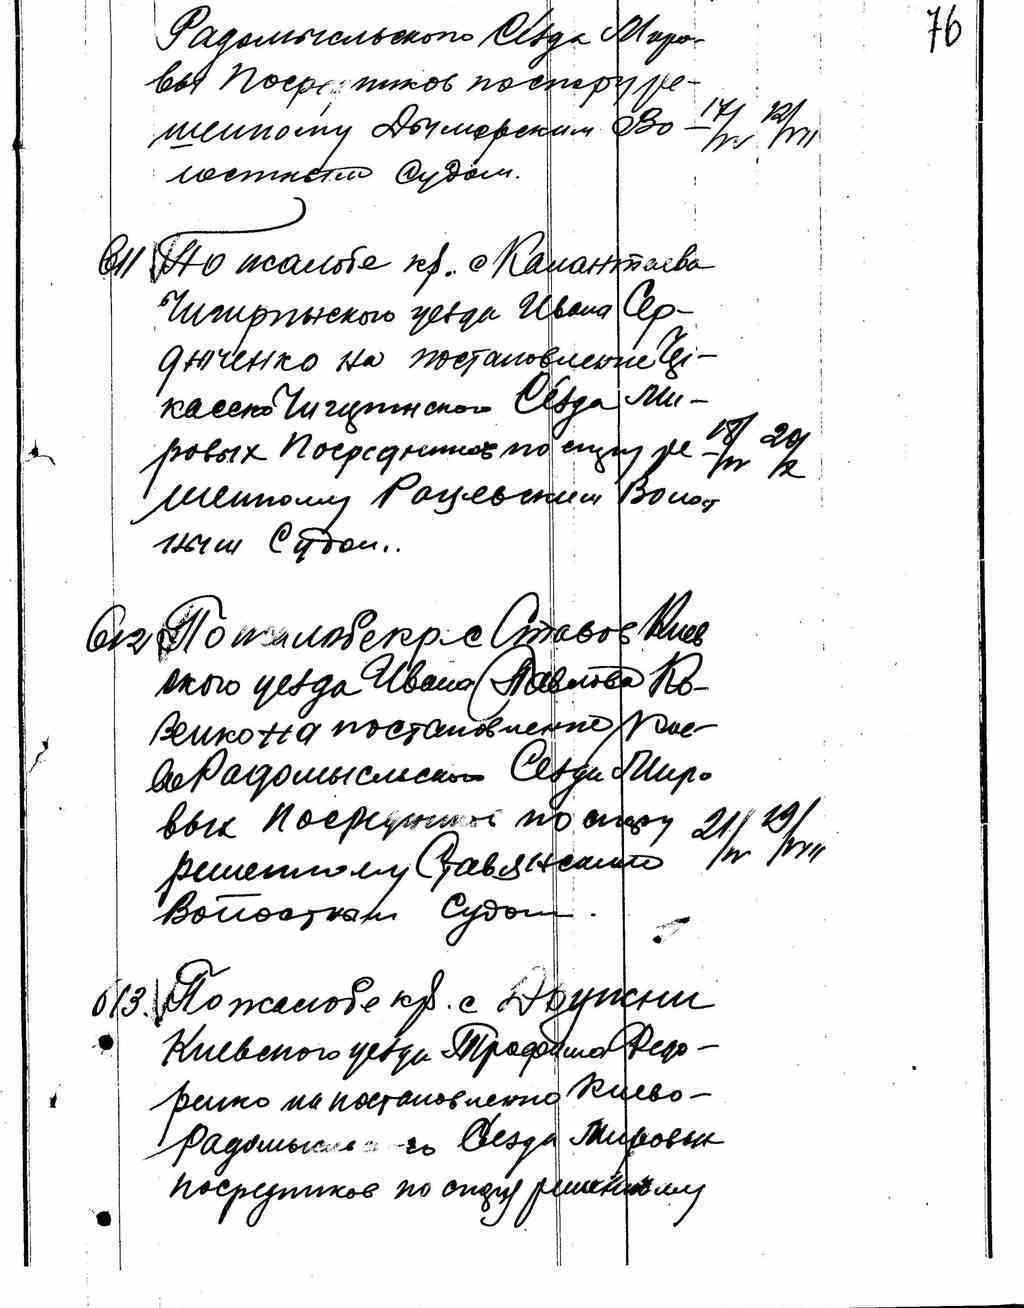 76
Радомысльского Съезда Миро-
вых Посредников по спору ре-
шенному Дымерским Во-
лостным Судом.
611 По жалобе кр. с Калантаева
Чигиринского уезда Ивана Сер-
дюченко на постановление Чер-
касско Чигиринского Съезда Ми-
ровых Посредников по спору ре-
шенному Рацевским Волост
ным Судом..
612 По жалобе кр. с Ставов Киев
ского уезда Ивана Павлова Ко-
на постановление Кие-
во Радомысльского Съезда Миро
вых Посредников по спору 21/IV 29/VIII
решенному Ставянским
Волостным Судом.
613. По жалобе кр. с
Киевского уезда Трофима Федо-
ренко на постановление Киево-
Радомысльского Съезда Мировых
посредников по спору решенному